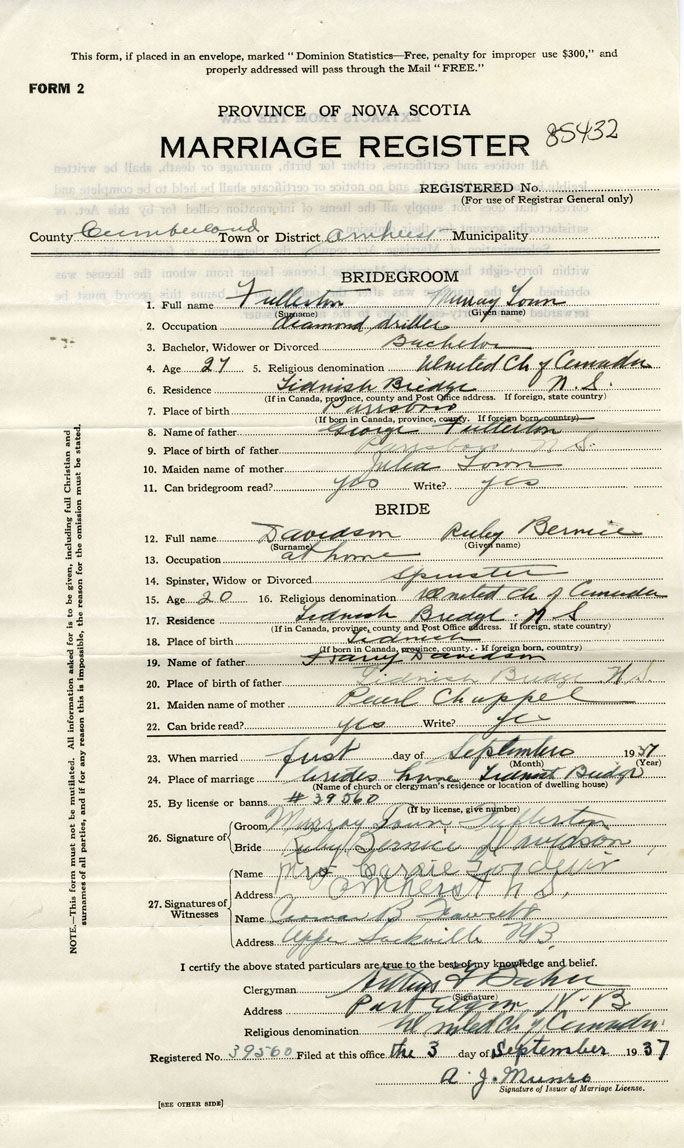 This form, if placed in an envelope, marked "Dominion Statistics—Free, penalty for improper use $300," and
properly addressed will pass through the Mail "FREE."
FORM 2
PROVINCE OF NOVA SCOTIA
MARRIAGE REGISTER 85432
REGISTERED No.
(For use of Registrar General only)
County Cumberland Town or District Amherst Municipality
BRIDEGROOM
1. Full name Fullerton Murray Town
(Surname) (Given name)
2. Occupation diamond driller
3. Bachelor, Widower or Divorced Bachelor
4. Age 27 5. Religious denomination United Ch of Canada
6. Residence Tidnish Bridge N.S.
(If in Canada, province, county and Post Office address. If foreign, state country)
7. Place of birth Parrsboro
(If born in Canada, province, county. If foreign born, country)
8. Name of father George Fullerton
9. Place of birth of father Parrsboro N.S.
10. Maiden name of mother Julia Town
11. Can bridegroom read? yes Write? yes
BRIDE
12. Full name Davidson Ruby Bernice
(Surname) (Given name)
13. Occupation at home
14. Spinster, Widow or Divorced Spinster
15. Age 20 16. Religious denomination United Ch of Canada
17. Residence Tidnish Bridge N S
(If in Canada, province, county and Post Office address. If foreign, state country)
18. Place of birth Tidnish
(If born in Canada, province, county. If foreign born, country)
19. Name of father Harry Davidson
20. Place of birth of father Tidnish Bridge N.S.
21. Maiden name of mother Pearl Chappel
22. Can bride read? yes Write? yes
23. When married first day of September 1937
(Month) (Year)
24. Place of marriage brides home Tidnish Bridge
(Name of church or clergyman's residence or location of dwelling house)
25. By license or banns # 39560
(If by license, give number)
26. Signature of Groom Murray Town Fullerton
Bride Ruby Bernice Davidson
27. Signatures of Witnesses
Name Mrs Carrie
Address Amherst N S.
Name B Fawcett
Address Upper Sackville N.B.
I certify the above stated particulars are true to the best of my knowledge and belief.
Clergyman
(Signature)
Address Port Elgin N.B.
Religious denomination United Ch of Canada
Registered No. 39560 Filed at this office the 3 day of September 1937
A. J. Munro
Signature of Issuer of Marriage License.
[SEE OTHER SIDE]
NOTE.—This form must not be mutilated. All information asked for is to be given, including full Christian and
surnames of all parties, and if for any reason this is impossible, the reason for the omission must be stated.